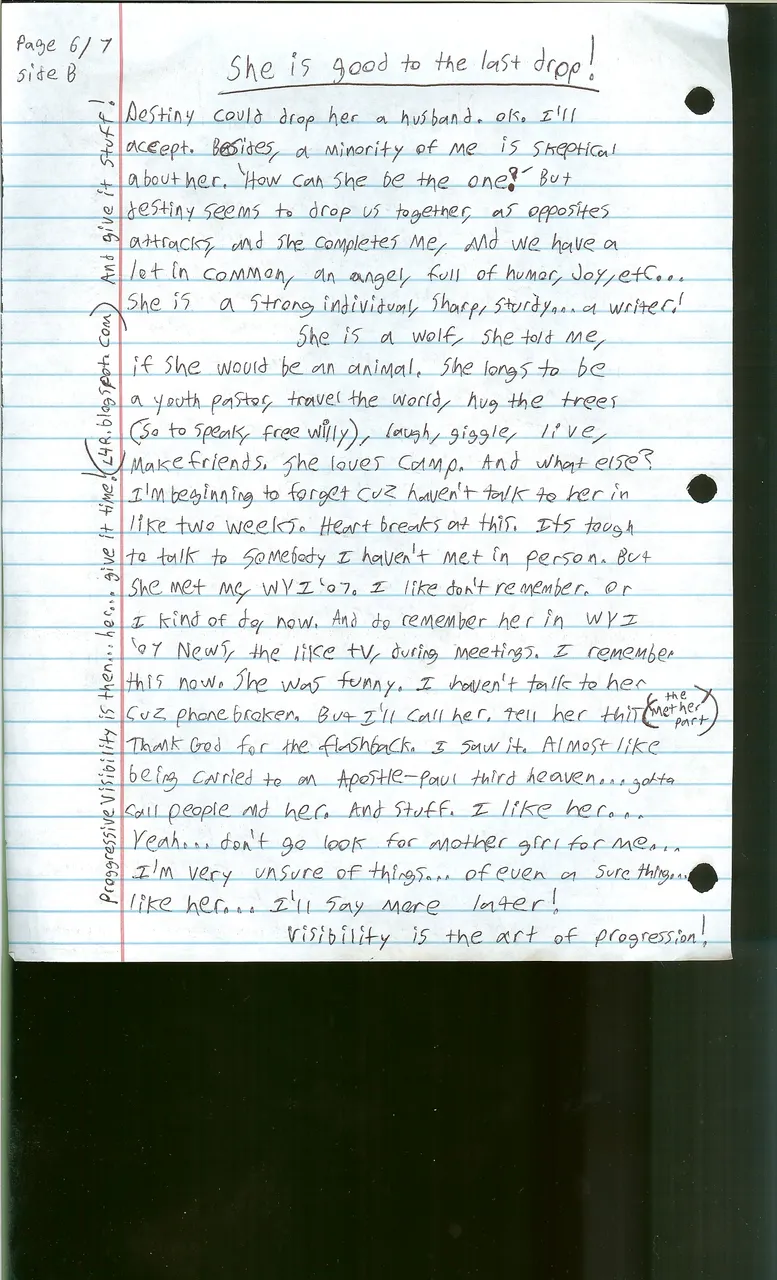 Page 6/7
side B
She is good to the last drop!
Destiny could drop her a husband. ok. I'll
accept. Besides, a minority of me is skeptical
about her. "How can she be the one?" But
destiny seems to drop us together, as opposites
attracks, and she completes me, and we have a
lot in common, an angel, full of humor, Joy, etc...
She is a strong individual, sharp, sturdy... a writer!
She is a wolf, she told me,
if she would be an animal. She longs to be
a youth pastor, travel the world, hug the trees
(so to speak, free willy), laugh, giggle, live,
make friends. She loves camp. And what else?
I'm beginning to forget cuz haven't talk to her in
like two weeks. Heart breaks at this. Its tough
to talk to somebody I haven't met in person. But
she met me, WYI '07. I like don't remember. Or
I kind of do, now. And do remember her in WYI
'07 News, the like tV, during meetings. I remember
this now. She was funny. I haven't talk to her
cuz phone broken. But I'll call her. tell her this (the met her part)
Thank God for the flashback. I saw it. Almost like
being carried to an Apostle-Paul third heaven... gotta
call people and her. And stuff. I like her...
Yeah... don't go look for another girl for me...
I'm very unsure of things... of even a sure thing...
like her... I'll say more later!
Visibility is the art of progression!
Proggressive Visibility is then... her... give it time! (L4R.blogspot.com) And give it stuff!